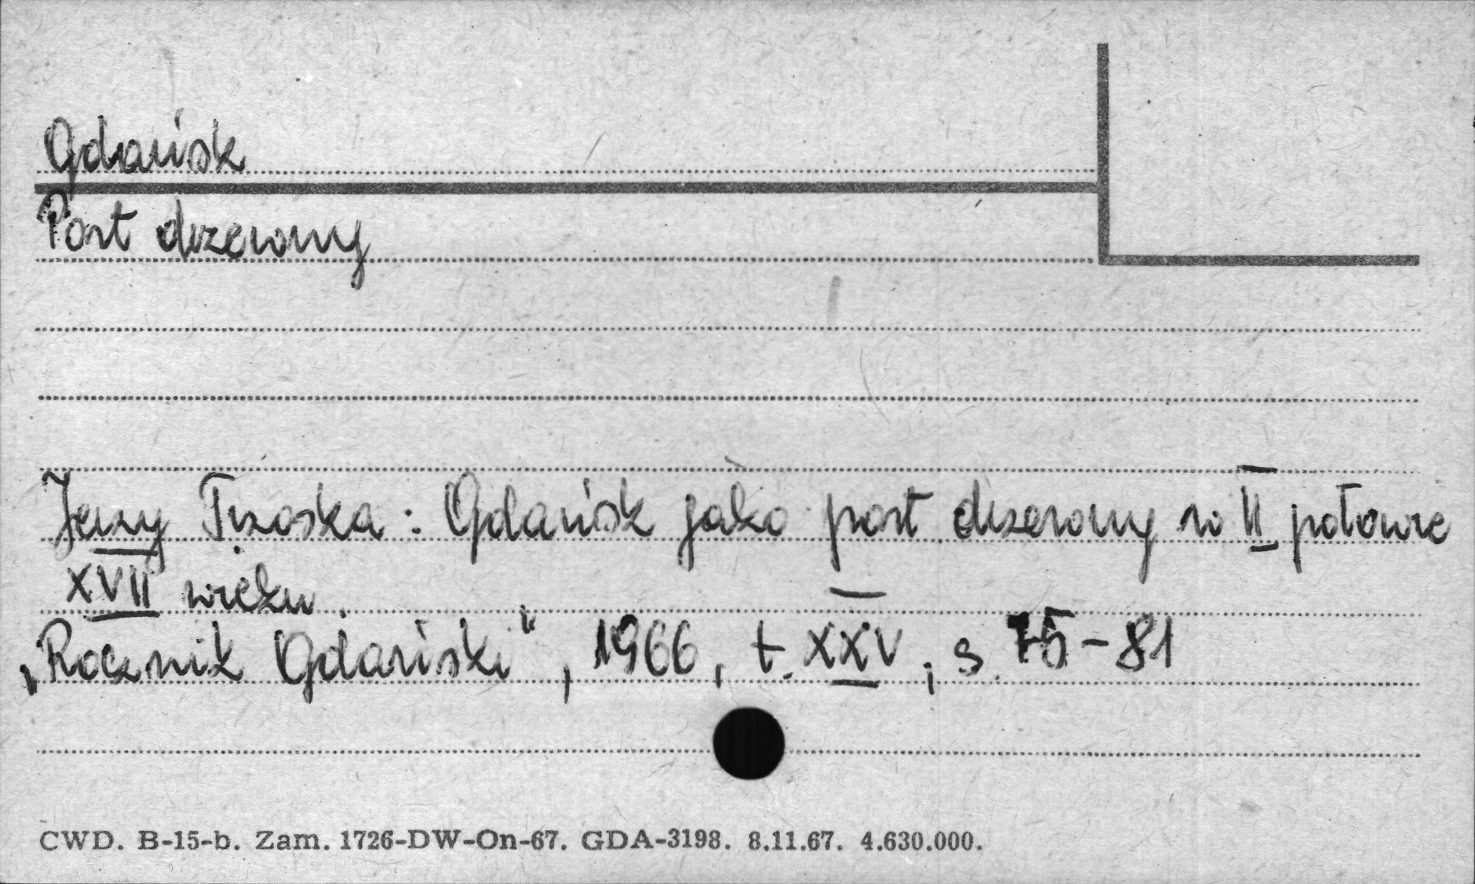 Gdańsk
Port drzewny
Jerzy Trzoska: Gdańsk jako port drzewny w II połowie
XVII wieku.
„Rocznik Gdański", 1966, t. XXV, s. 75-81
CWD. B-15-b. Zam. 1726-DW-On-67. GDA-3198. 8.11.67. 4.630.000.